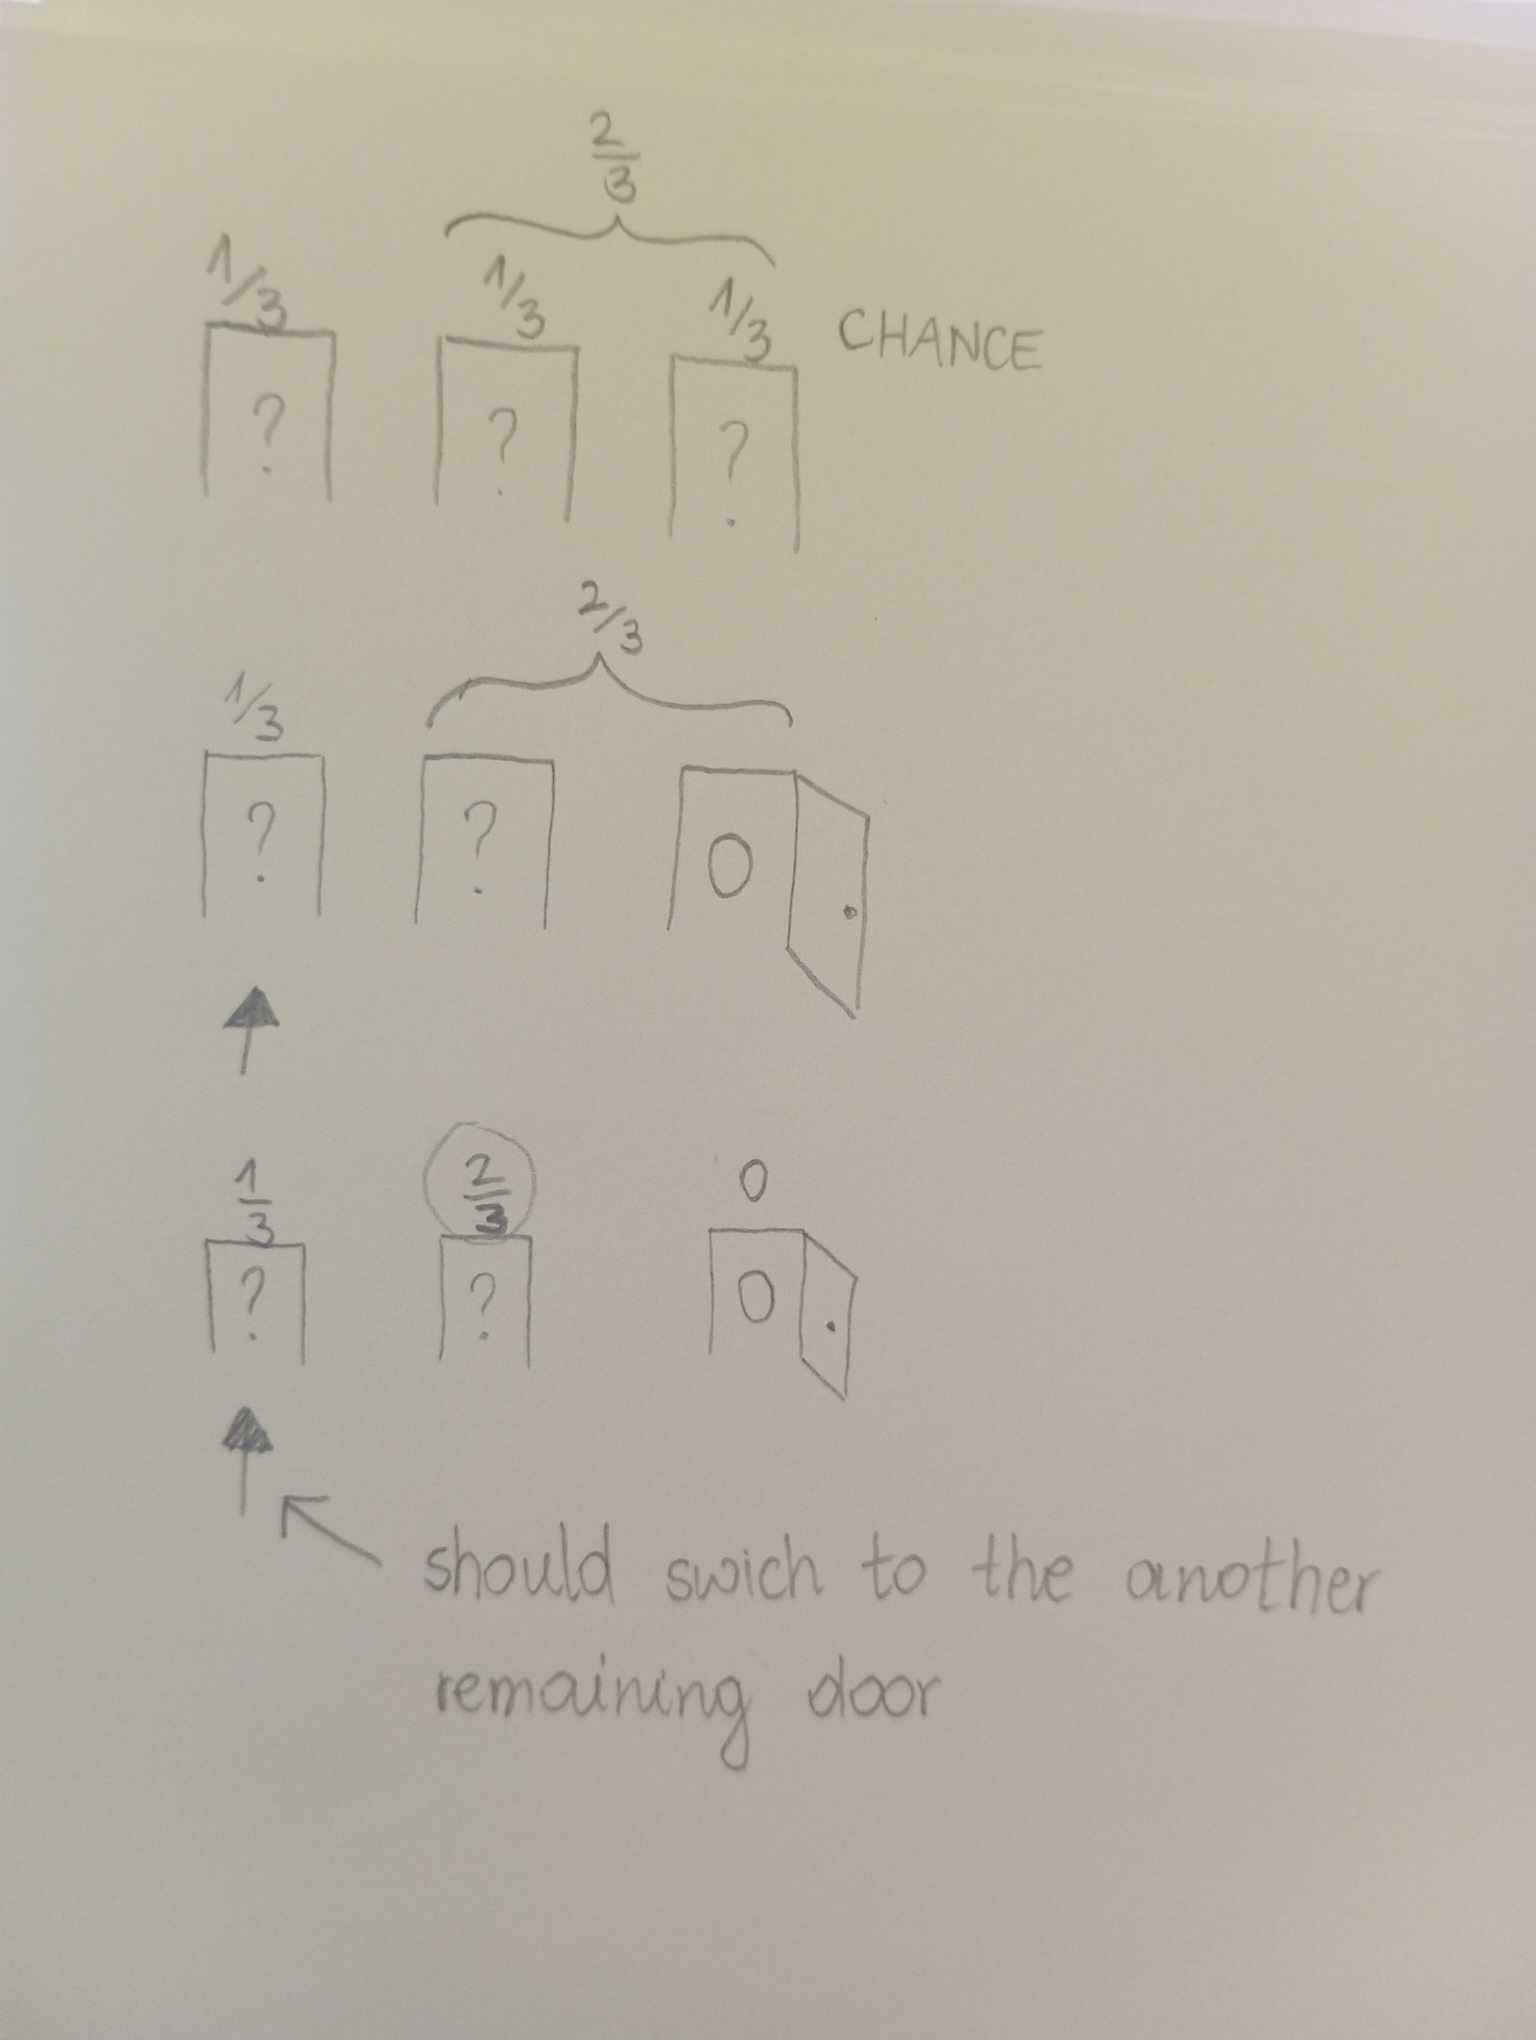 2/3
1/3 1/3 1/3 CHANCE
? ? ?
2/3
1/3
? ? 0
1/3 2/3 0
? ? 0
should swich to the another
remaining door